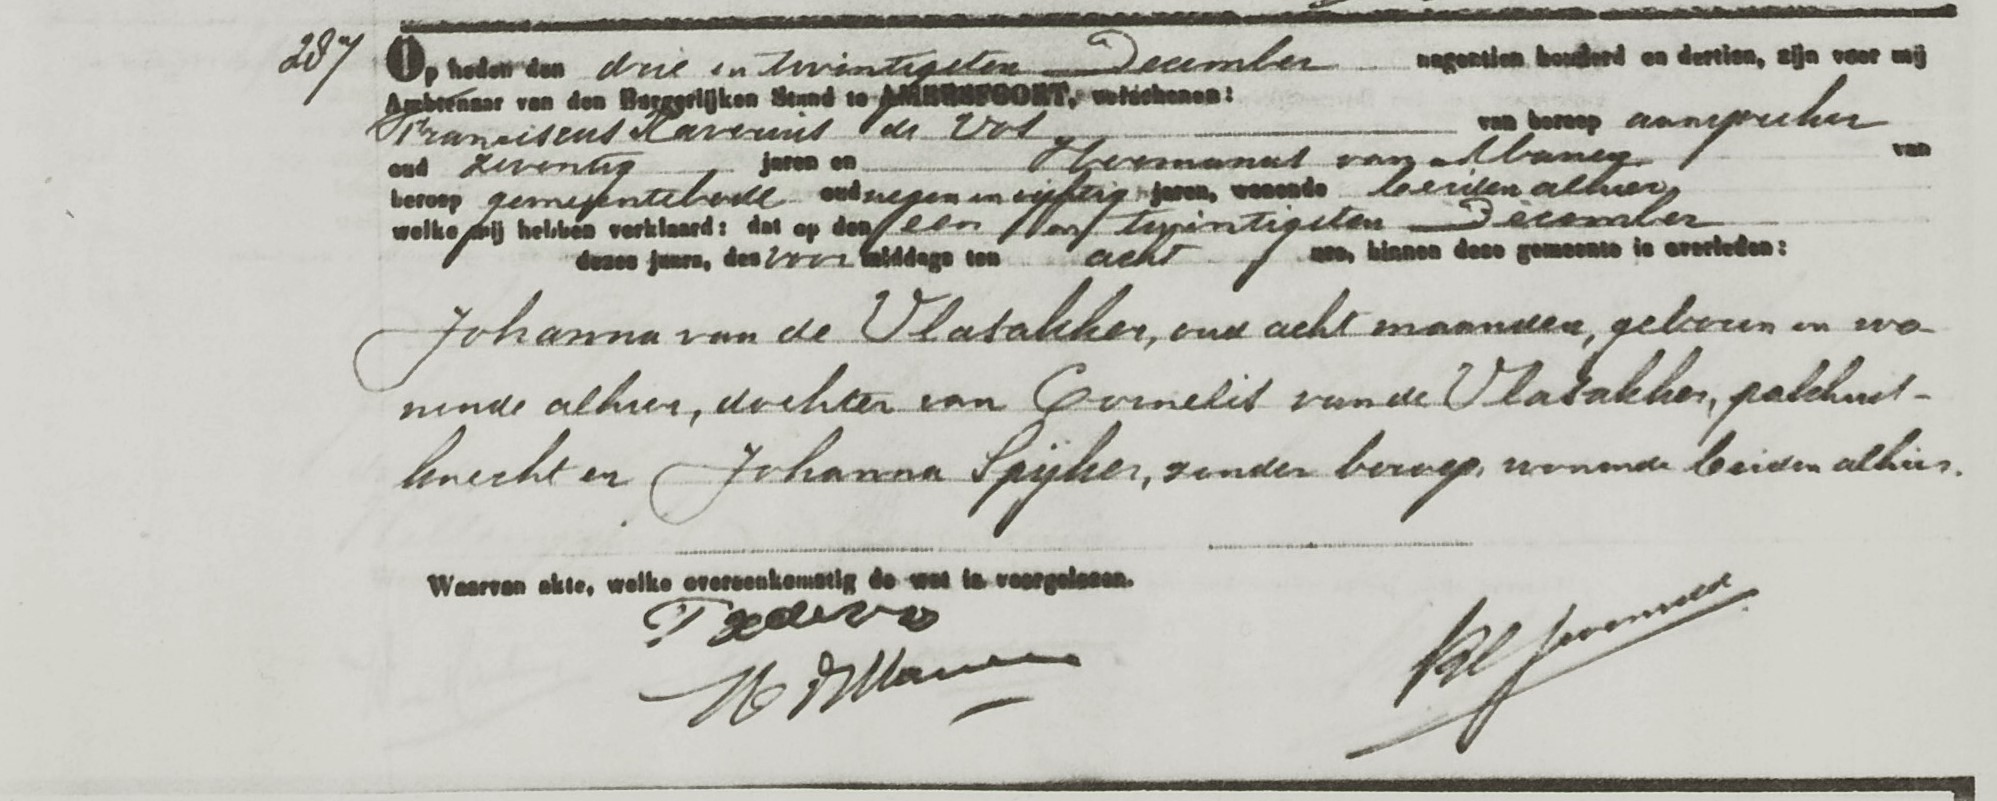 287
Op heden den drie en twintigsten December negentien honderd en dertien, zijn voor mij
Ambtenaar van den Burgerlijken Stand te AMERSFOORT, verschenen:
Franciscus Xaverius de Vos van beroep aanspreker
oud zeventig jaren en Hermanus van van
beroep gemeentebode oud negen en vijftig jaren, wonende beiden alhier,
welke mij hebben verklaard: dat op den een en twintigsten December
dezes jaars, des voor middags ten acht ure, binnen deze gemeente is overleden:
Johanna van de Vlasakker, oud acht maanden, geboren en wo-
nende alhier, dochter van Cornelis van de Vlasakker, pakhuis-
knecht en Johanna Spijker, zonder beroep, wonende beiden alhier.
Waarvan akte, welke overeenkomstig de wet is voorgelezen.